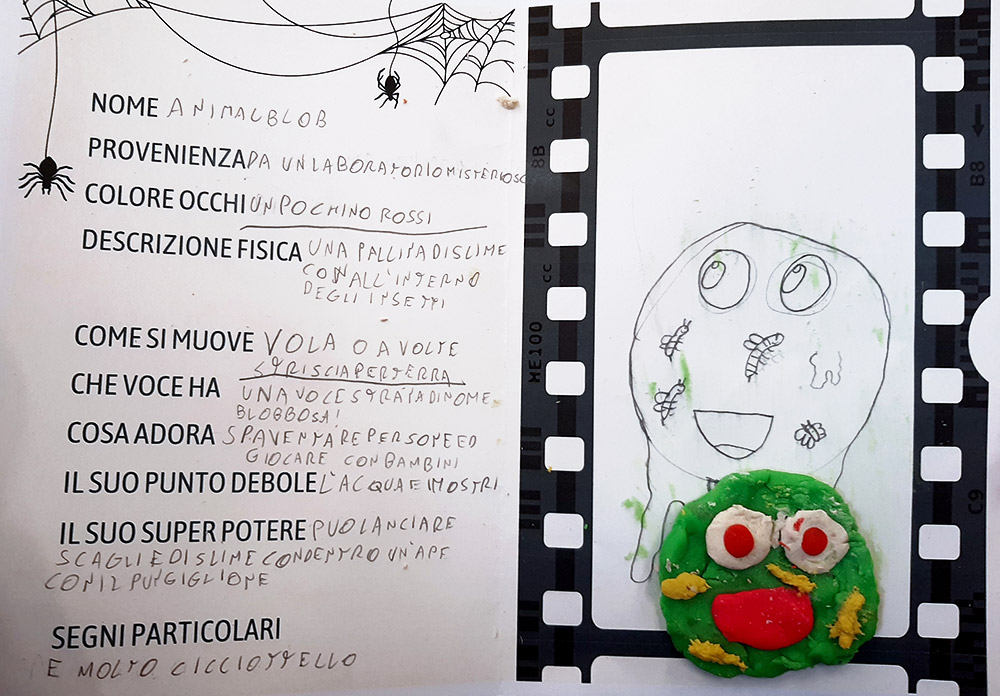 NOME ANIMALBLOB
PROVENIENZA DA UN LABORATORIO MISTERIOSO
COLORE OCCHI UN POCHINO ROSSI
DESCRIZIONE FISICA UNA PALLINA DI SLIME
CON ALL'INTERNO
DEGLI INSETTI
COME SI MUOVE VOLA O A VOLTE
STRISCIA PER TERRA
CHE VOCE HA UNA VOCE STRATA DI NOME
BLOBBOSA!
COSA ADORA SPAVENTARE PERSONE ED
GIOCARE CON BAMBINI
IL SUO PUNTO DEBOLE L'ACQUA E I MOSTRI
IL SUO SUPER POTERE PUO LANCIARE
SCAGLIE DI SLIME CON DENTRO UN'APE
CON IL PUNGIGLIONE
SEGNI PARTICOLARI
E MOLTO CICCIOTTELLO
cc
8B
cc
ME100
B8
C9